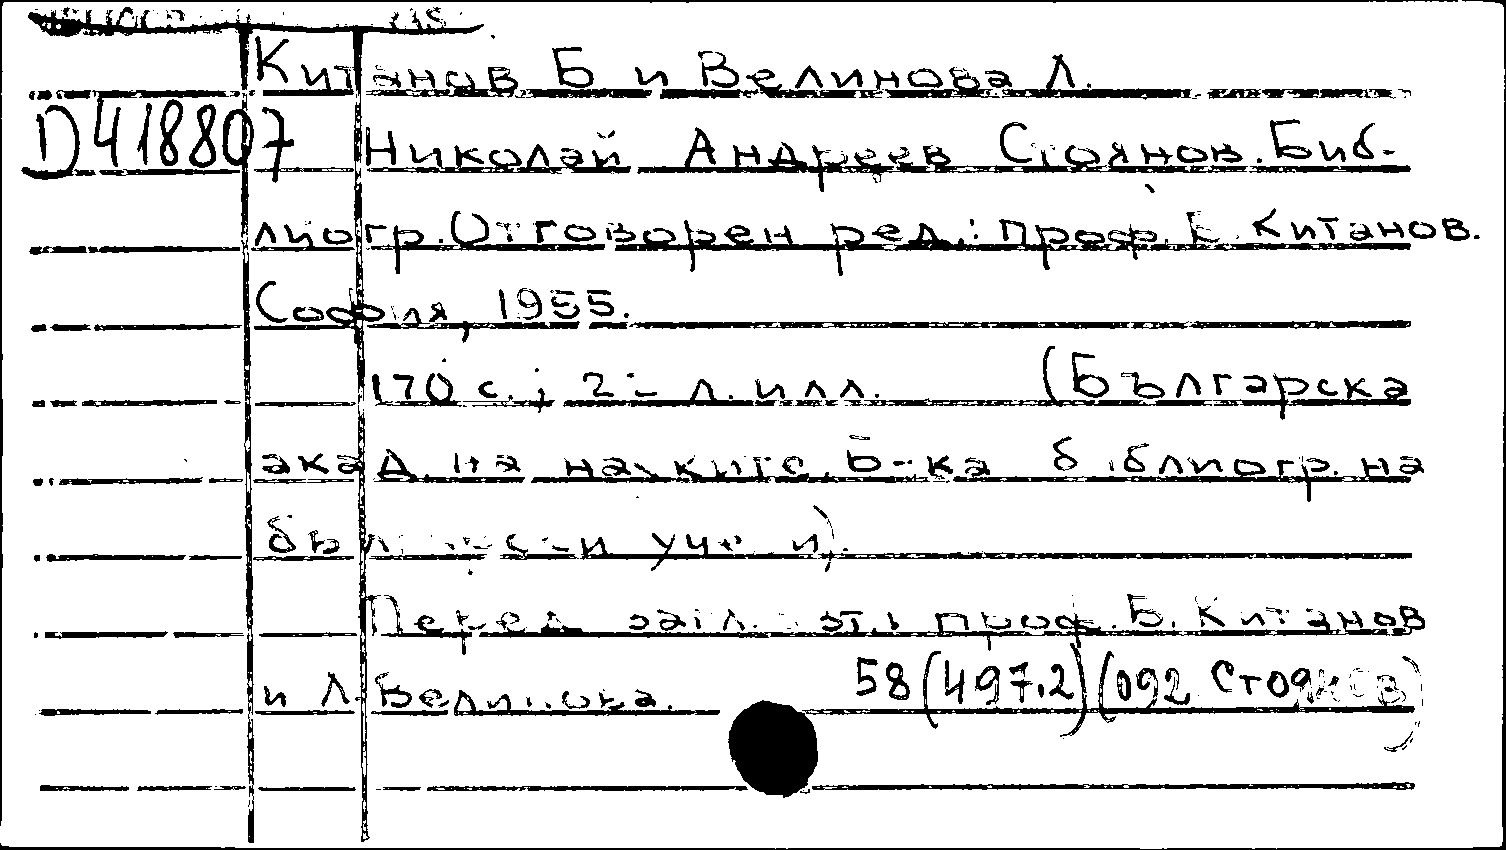 Китанов Б и Велинова Л.
D418807 Николай Андреев Стоянов. Биб-
лиогр. Отговорен ред.: проф. Б. Китанов.
София, 1955.
170 с.; 2 л. илл. (Българска
акад. на науките. Б-ка библиогр. на
български учени).
Перед загл. авт.: проф. Б. Китанов
и Л. Велинова. 58(497.2)(092 Стоянов)